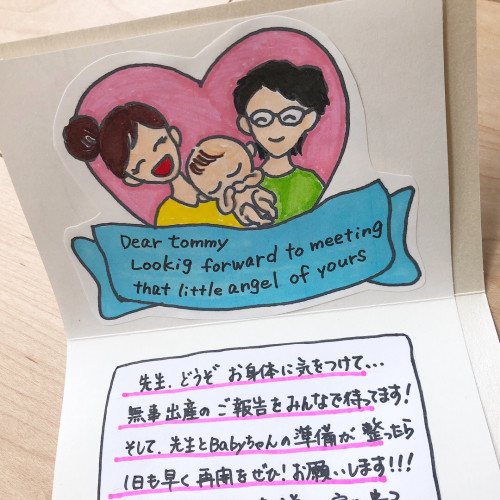 Dear tommy
Lookig forward to meeting
that little angel of yours
先生、どうぞ お身体に気をつけて...
無事出産のご報告をみんなで待ってます!
そして、先生とBabyちゃんの準備が整ったら
1日も早く再開をぜひ!お願いします!!!